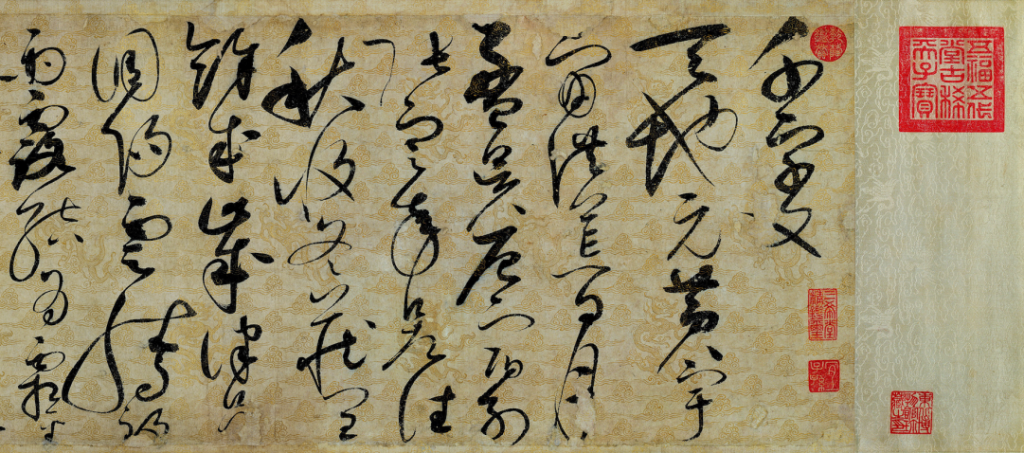 五福五代
堂古稀
天子寶
千字文
天地元黃宇
宙洪荒日月
盈昃辰宿列
張寒來暑往
秋收冬藏閏
餘成歲律呂
調陽雲騰致
雨露結為霜
三希堂
精鑑璽
宜子孫